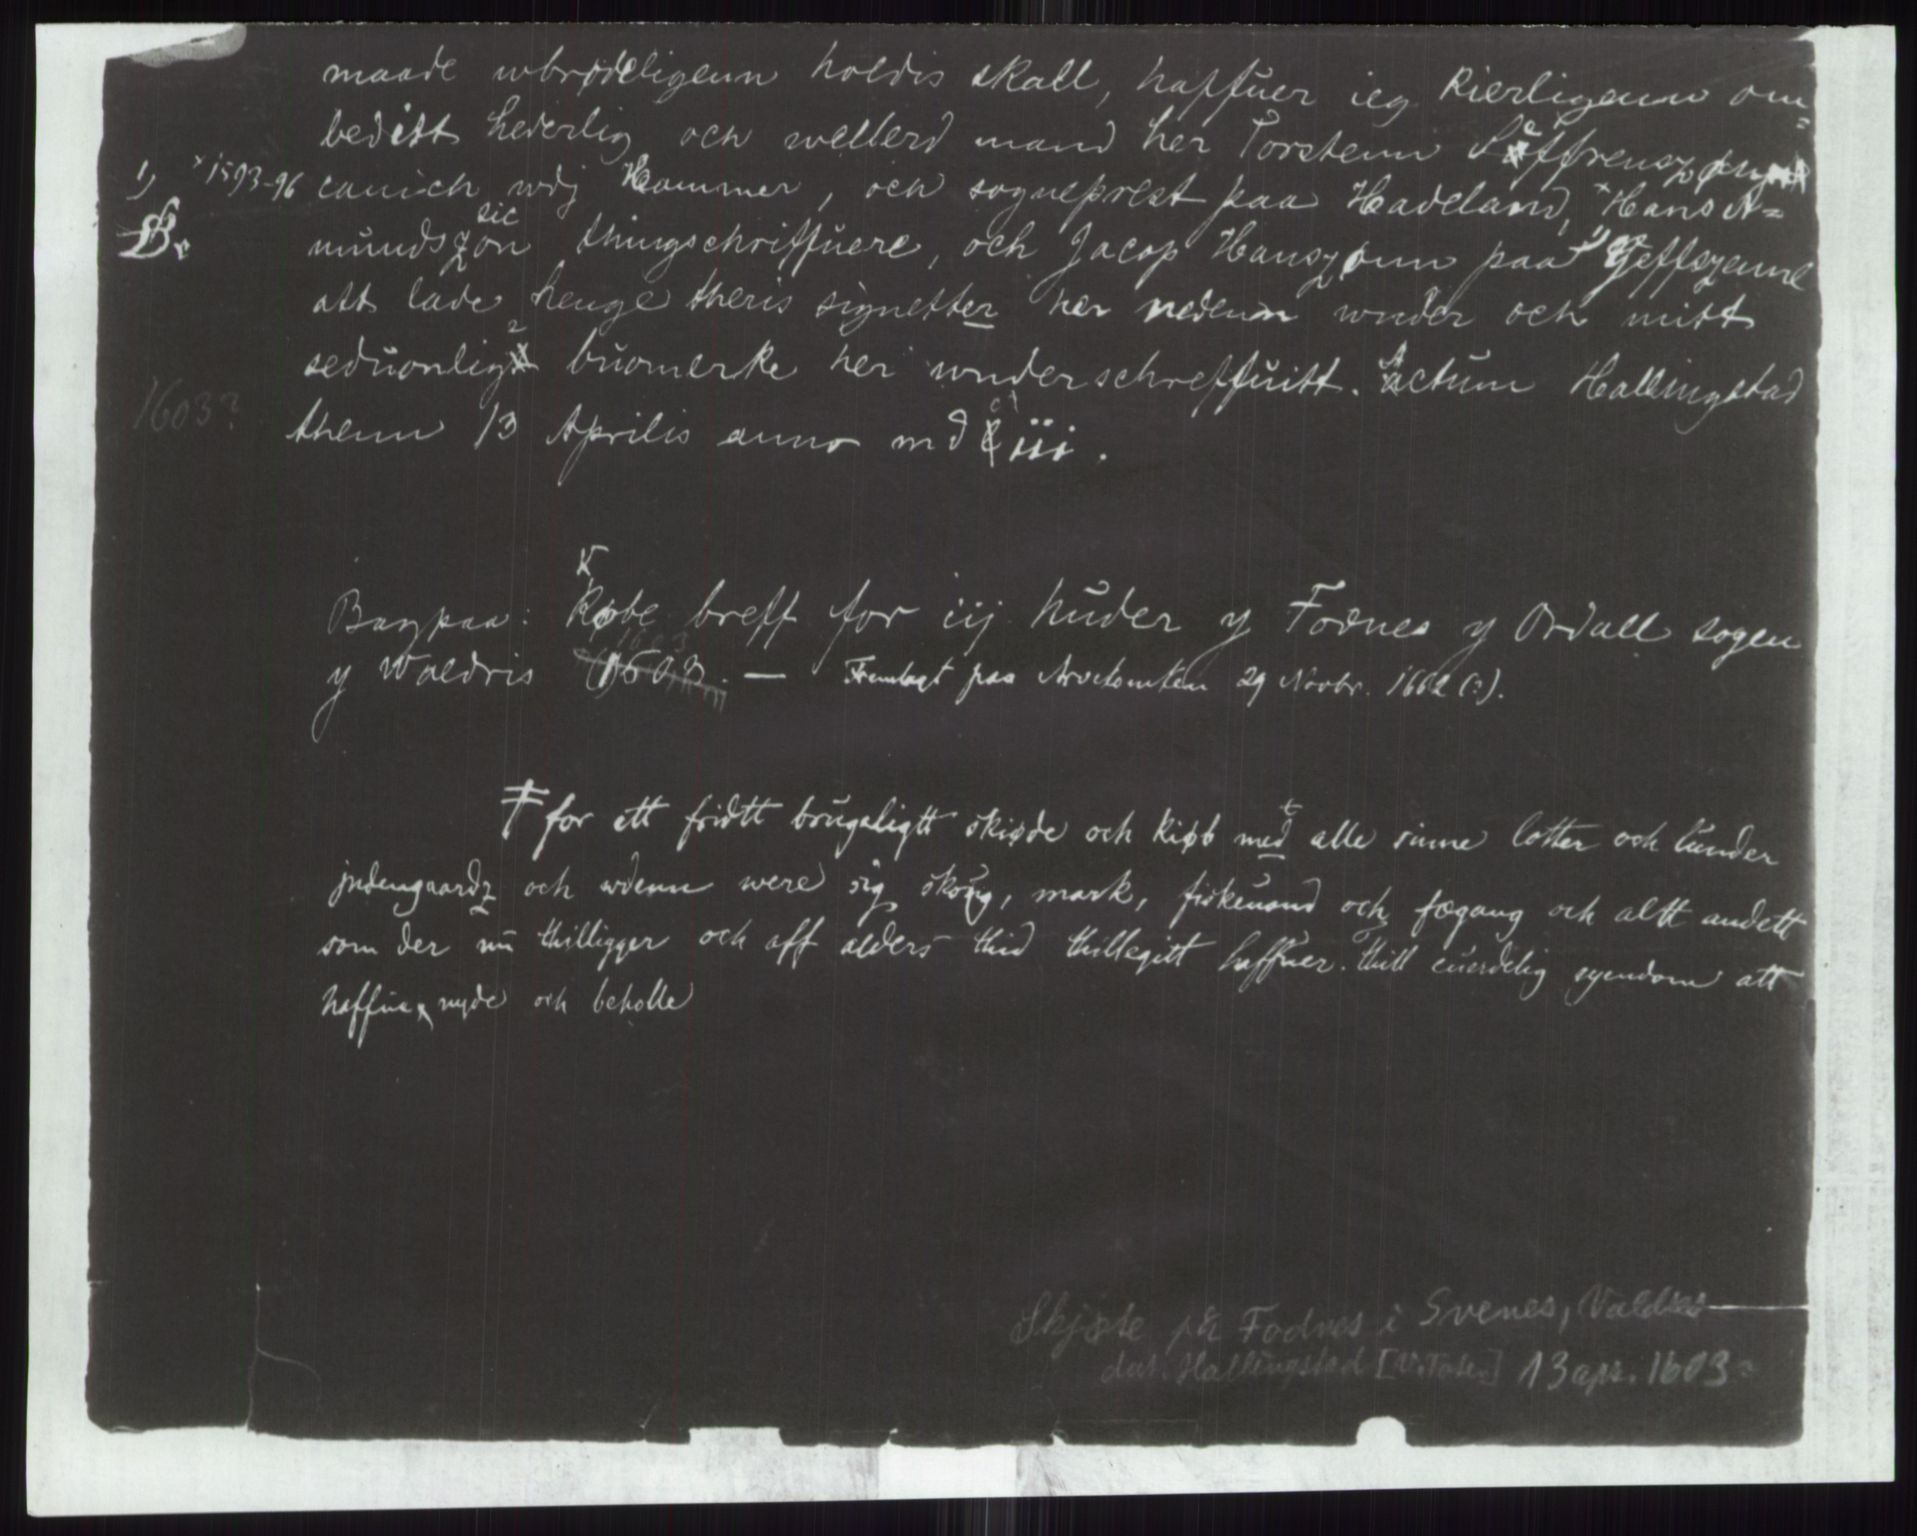 maade wbrødeligenn holdis skall, haffuer ieg kierligenn om=
beditt hederlig och wellerd mand her Torstenn Søffrenszønn
1) ×1593-96 canich wdj Hammer, och sogneprest paa Hadeland, ×Hans A=
B. mundszøn sic thingschriffuere, och Jacop Hanszønn paa 1) Geffszenne
att lade henge theris signetter her nedenn wnder och mitt
seduonlig buomerke her wnderschreffuitt. Actum Hallingstad
1603? thenn 13 Aprilis anno md iii.
Bagpaa: Købe breff for iij huder y Fodnes y Ordall sogen
y Waldris 1603 — Fremlagt paa Arvetomten 29 Novbr. 1662 (?).
for ett fridtt brugeligtt skiøde och kiøb med alle sinne lotter och lunder
jndengaardz och wdenn were sig skoug, mark, fiskeuand och fægang och altt andett
som der nu thilligger och aff alders thid thillegitt haffuer. thill euerdelig eyendom att
haffue, nyde och beholle
Skjøte på Fodnes i Svenes, Valdres
dat. Hallingstad [V. Toten] 13 apr. 1603?